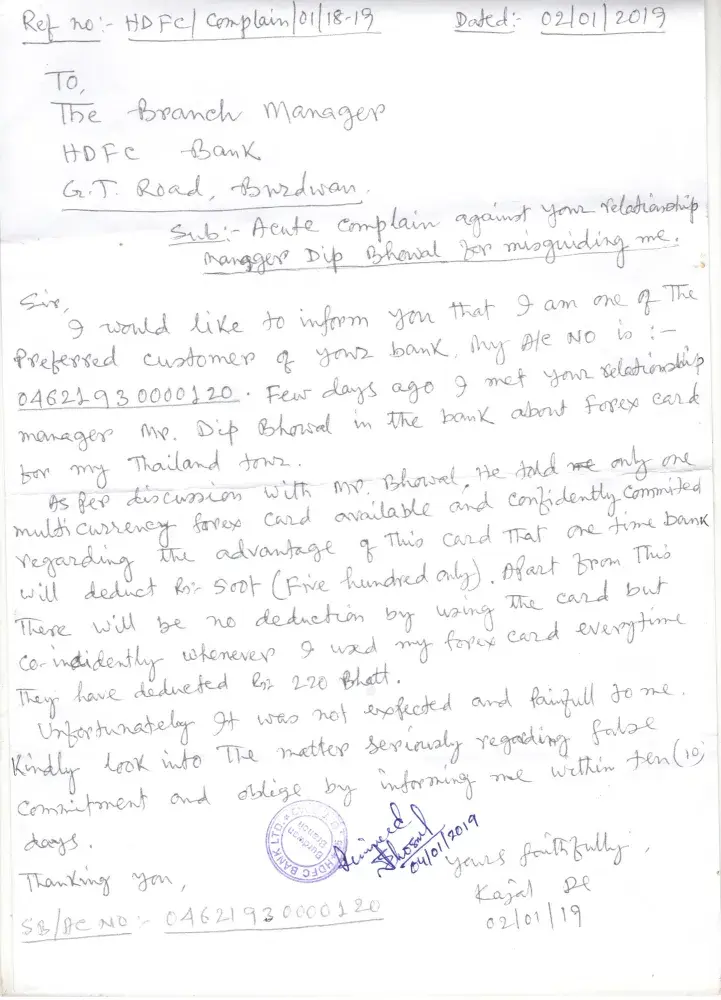 Ref no:- HDFC/Complain/01/18-19 Dated:- 02/01/2019
To,
The Branch Manager
HDFC Bank
G.T. Road, Burdwan.
Sub:- Acute complain against your relationship
manager Dip Bhowal for misguiding me.
Sir,
I would like to inform you that I am one of The
Preferred customer of your bank, my A/c NO is :-
04621930000120. Few days ago I met your relationship
manager Mr. Dip Bhowal in the bank about forex card
for my Thailand tour.
As per discussion with Mr. Bhowal, He told me only one
multi currency forex card available and confidently commited
regarding the advantage of This card That one time bank
will deduct Rs:- 500/- (Five hundred only). Apart from This
There will be no deduction by using The card but
co-incidently whenever I used my forex card everytime
They have deducted Rs 220 Bhatt.
Unfortunately It was not expected and Painfull to me.
Kindly look into The matter seriously regarding false
commitment and oblige by informing me within ten (10)
days.
Thanking you,
HDFC BANK LTD.
Burdwan
Branch
04/01/2019
yours faithfully,
Kajal De
02/01/19
SB/Ac NO:- 04621930000120